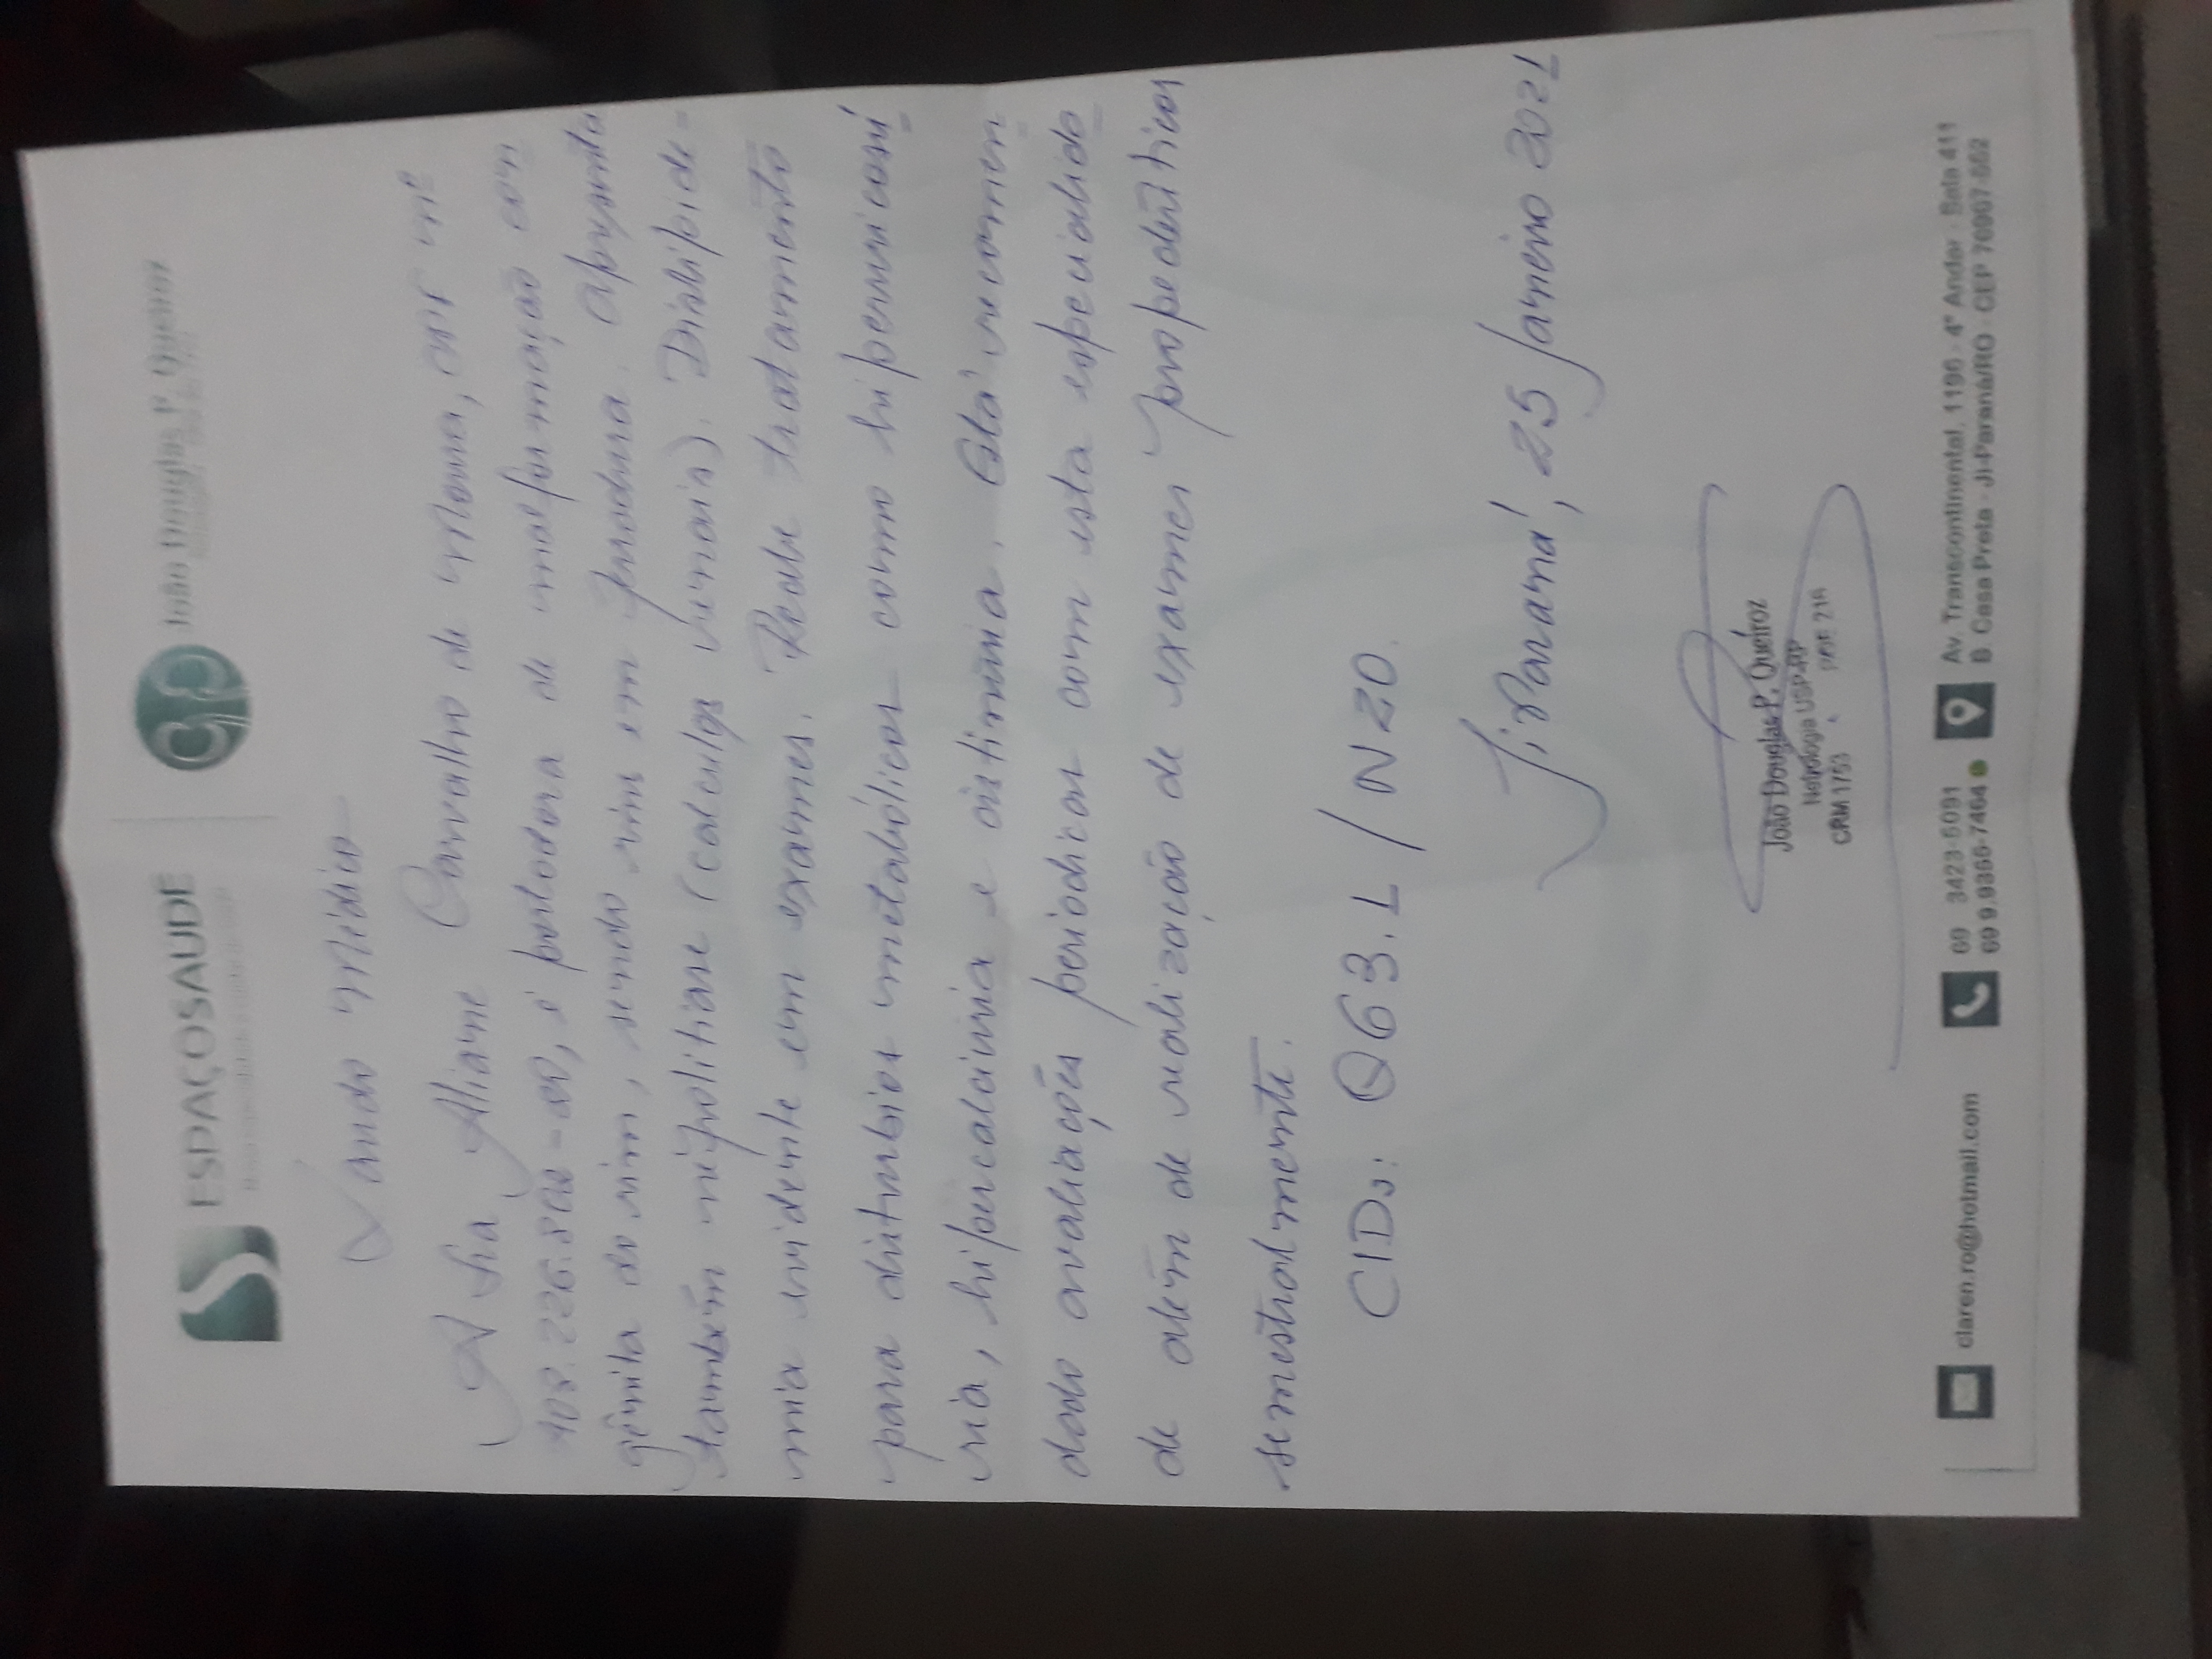 ESPAÇOSAUDE
João Douglas P. Queiroz
Laudo Médico
A Sra Aliane Carvalho de Moura, CPF nº
é portadora de malformação con
gênita do rim, sendo rins em ferradura. Apresenta
também nefrolitiase (calculos renais). Dislipide =
mia evidente em exames. Recebe tratamento
para disturbios metabólicos como hiperuricosú
ria, hipercalciuria e cistinuria. Está recomen
dado avaliações periodicas com esta especialida
de além de realização de exames propedeuticos
semestralmente.
CIDs: Q63.1 / N20.
JiParaná, 25 Janeiro 2021
João Douglas P. Queiroz
Nefrologia USP-RP
CRM 1753
claren.ro@hotmail.com
69 3423-5091
69 9.9366-7464
Av. Transcontinental, 1196 - 4° Andar - Sala 411
B. Casa Preta - Ji-Paraná/RO - CEP 76907-552